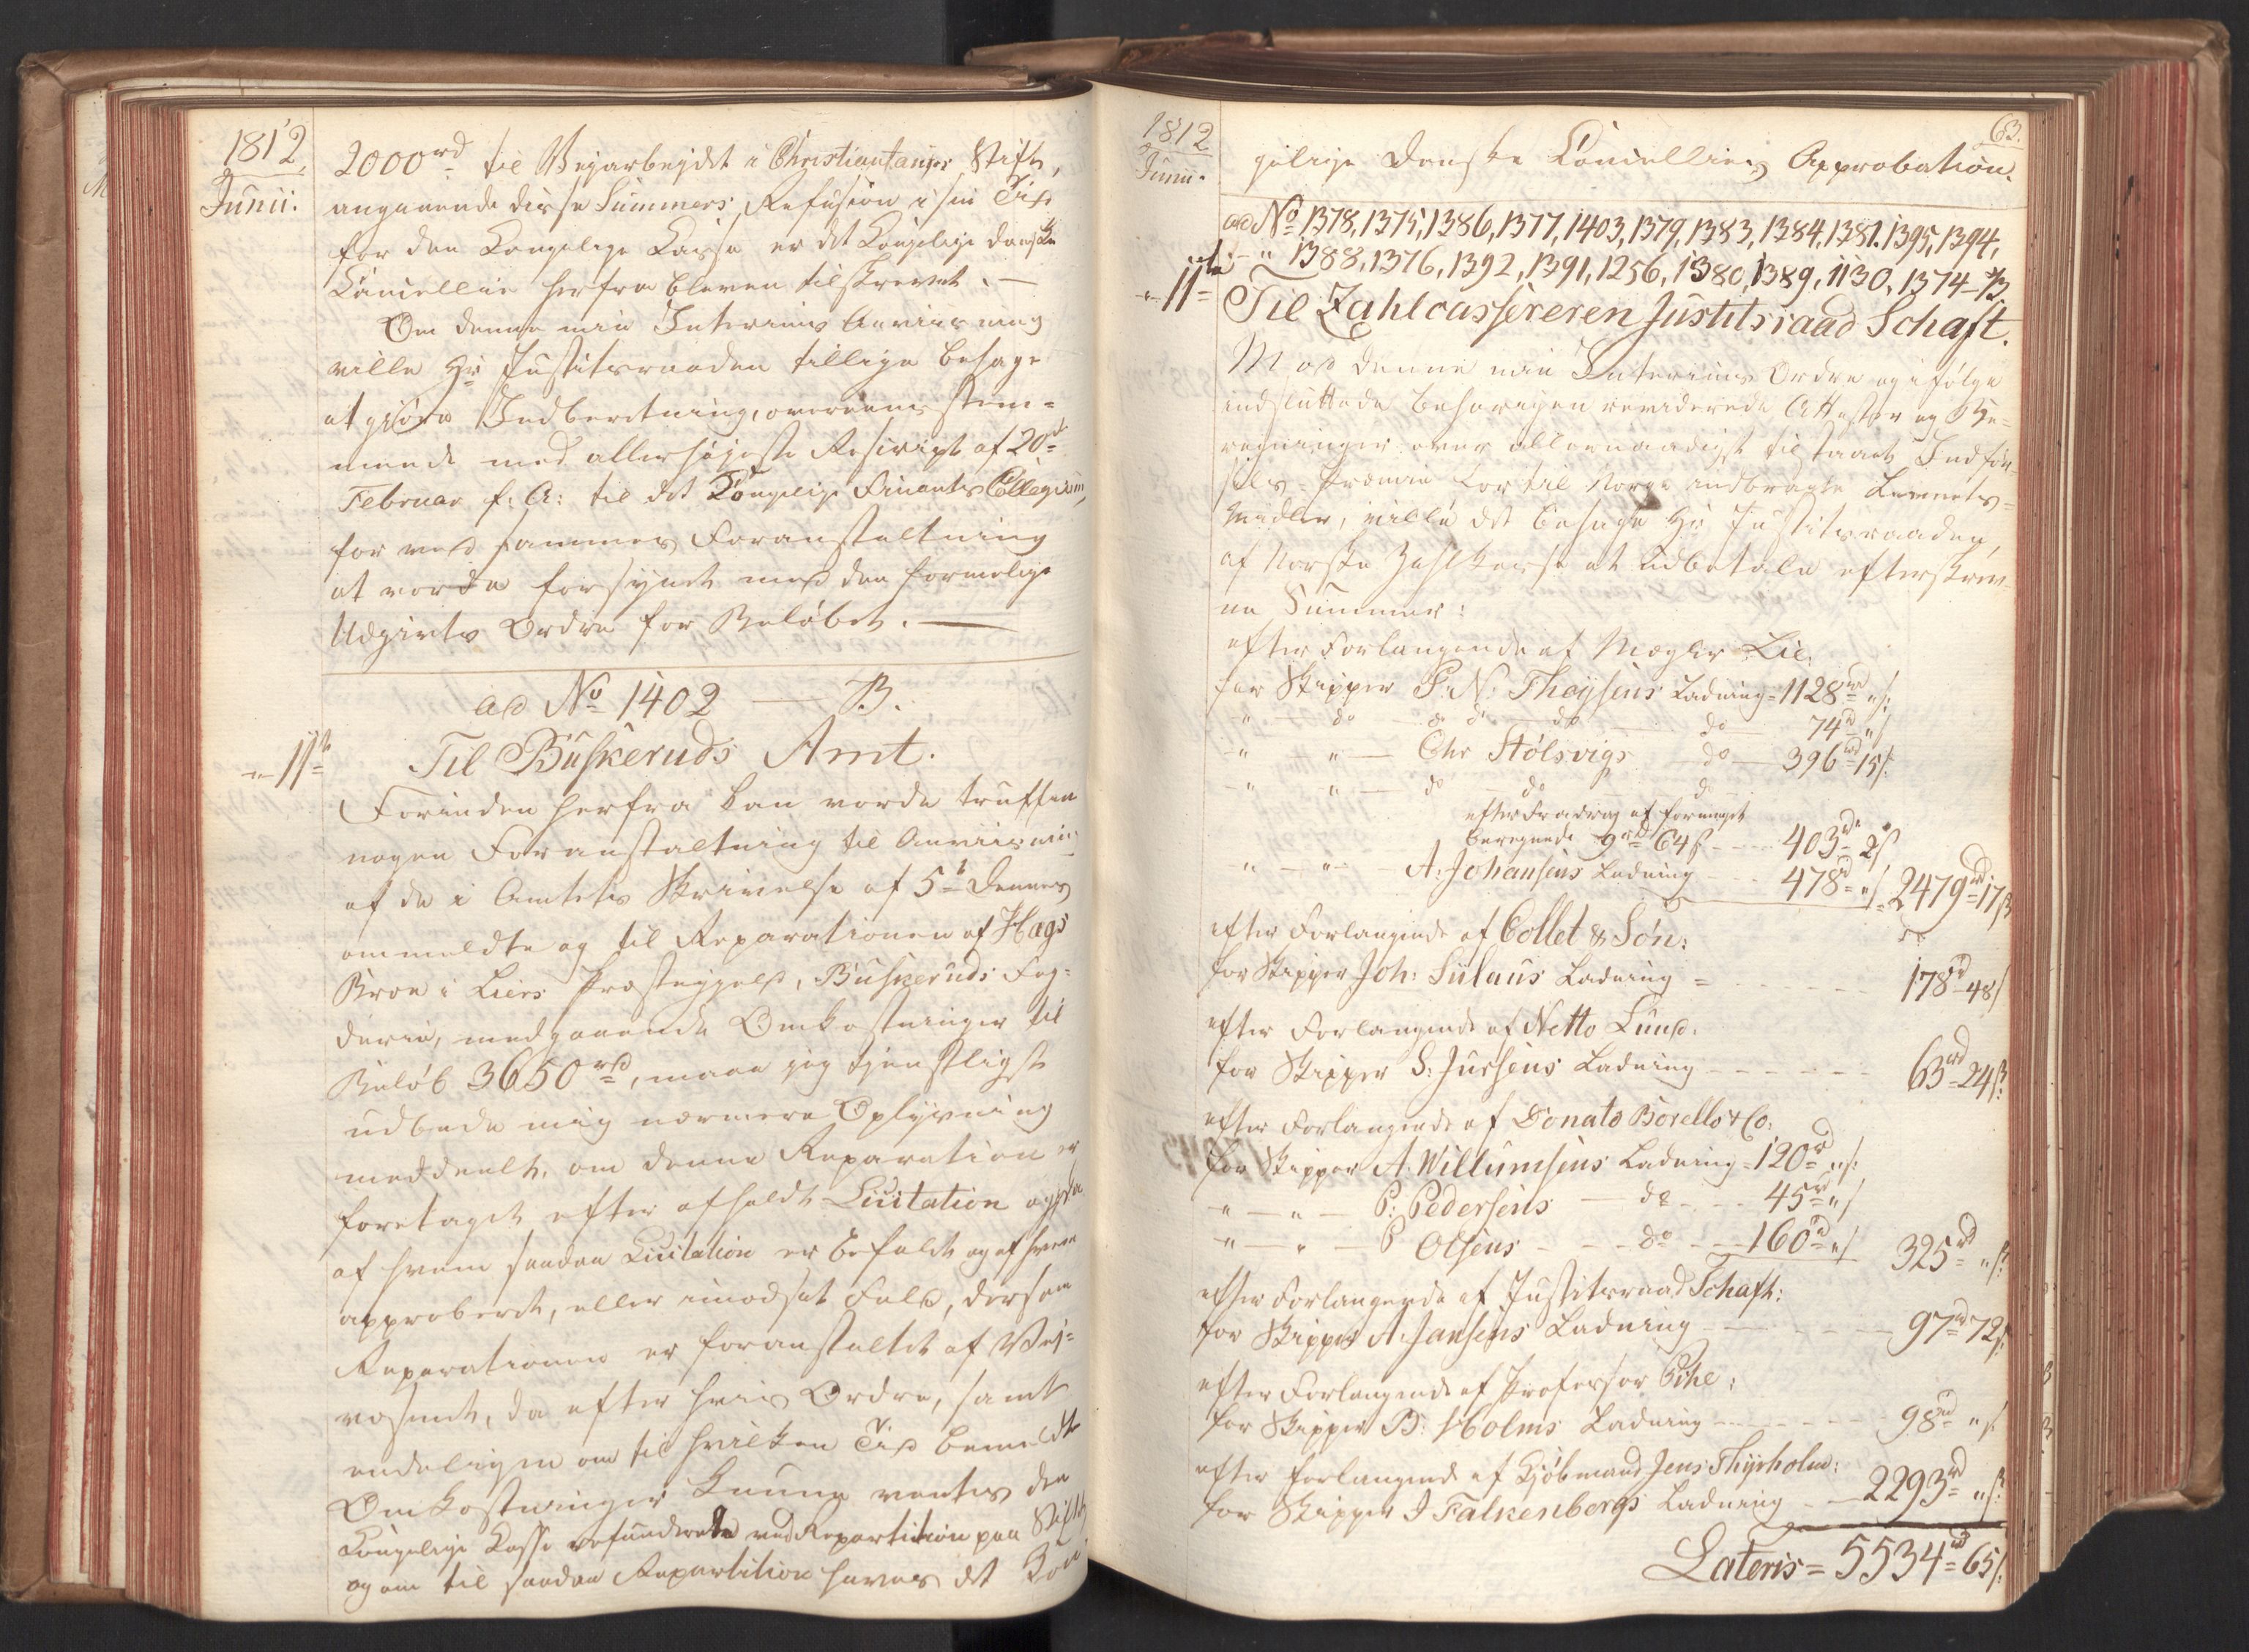 1812
Junii.
2000 rd til Vejarbejdet i Christiansands Stift,
angaaende disse Summers Refusion i sin Tid
for den Kongelige Casse er det Kongelige danske
Cancellie herfra bleven tilskrevet. —
Om denne min Interims Anviisning
ville Hr Justitsraaden tillige behage
at gjöre Indberetning, overeensstem=
mende med allerhöjeste Rescript af 20de
Februar f: A: til det Kongelige Finants Collegium,
for ved sammes Foranstaltning
at vorde forsynet med den formelige
Udgivts Ordre for Belöbet. —
ad No 1402 — B.
" 11te
Til Buskeruds Amt.
Forinden herfra kan vorde truffen
nogen Foranstaltning til Anviisning
af de i Amtets Skrivelse af 5te dennes
ommeldte og til Reparationen af Hags
Broe i Liers Præstegjeld, Buskeruds Fog=
derie, medgaaende Omkostninger til
Belöb 3650 rd, maae jeg tjenstligst
udbede mig nærmere Oplysning
meddeelt, om denne Reparation er
foretaget efter afholdt Licitation og da
af hvem saadan Licitation er befalet og af hvem
approberet, eller imodsat Fald, dersom
Reparationen er foranstaltet af Vej=
væsenet, da efter hvis Ordre, samt
endeligen om til hvilken Tid bemeldte
Omkostninger kunne ventes den
Kongelige Casse refunderede ved Repartition paa Stiftet
og om til saadan Repartition haves det Kon
63.
1812
Junii.
gelige danske Cancellies Approbation.
ad No 1378, 1375, 1386, 1377, 1403, 1379, 1383, 1384, 1381. 1395, 1394,
" 1388, 1376, 1392, 1391, 1256, 1380, 1389, 1130, 1374 — B
" 11te
Til Zahlcassereren Justitsraad Schaft.
Mod denne min Interims Ordre og ifölge
indsluttede behörigen reviderede Attester og Be=
regninger over allernaadigst tilstaaet Indför=
sels=Præmie for til Norge indbragte Levnets=
midler, ville det behage Hr Justitsraaden
af Norske Zahlkasse at udbetale efterskrev=
ne Summer:
efter Forlangende af Mægler Lie:
for Skipper P. N: Thoysens Ladning = 1128 rd " s:
" — do — do — do — do — 74 rd " s
" — " — Chr Stölsvigs — do — 396 rd 15 s:
" — " — do — do — do
efter Fradrag af formeget
beregnede 9 rd 64 s — 403 rd 2 s
" — " — A: Johansens Ladning — 478 rd " s = 2479 rd 17 s
efter Forlangende af Collet & Sön:
for Skipper Joh: Sülaus Ladning = 178 rd 48 s
efter Forlangende af Netto Lund:
for Skipper S: Jurssens Ladning — 63 rd 24 s:
efter Forlangende af Donato Borello & Co:
for Skipper A: Willumsens Ladning = 120 rd " s:
" — " — P: Pedersens — do — 45 rd " s
" — " — P Olsens — do — 160 rd " s 325 rd " s:
efter Forlangende af Justitsraad Schaft:
for Skipper A. Jansens Ladning — 97 rd 72 s:
efter Forlangende af Professor Pihl:
for Skipper B: Holms Ladning — 98 rd " s
efter Forlangende af Kjöbmand Jens Thyrholm:
for Skipper J Falkenbergs Ladning — 2293 rd " s:
Lateris = 5534 rd 65 s: